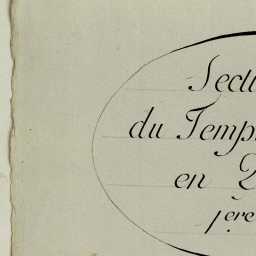 Secti
du Temp
en 2
1ere